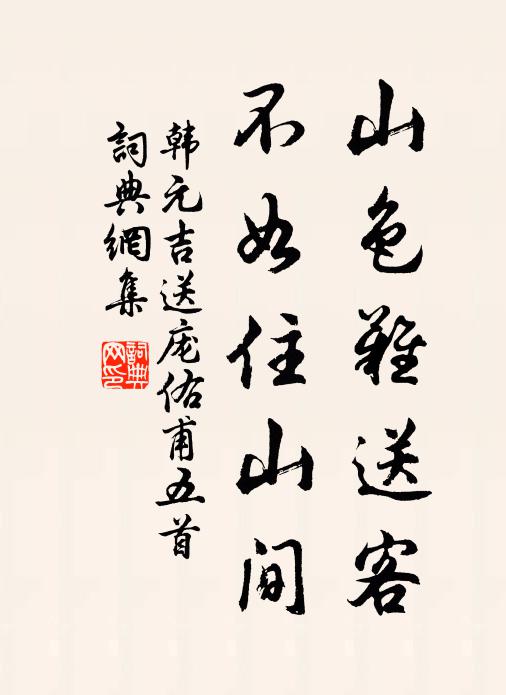 山色難送客
不如住山間
韩元吉送庞佑甫五首
詞典網集
詞典
网印